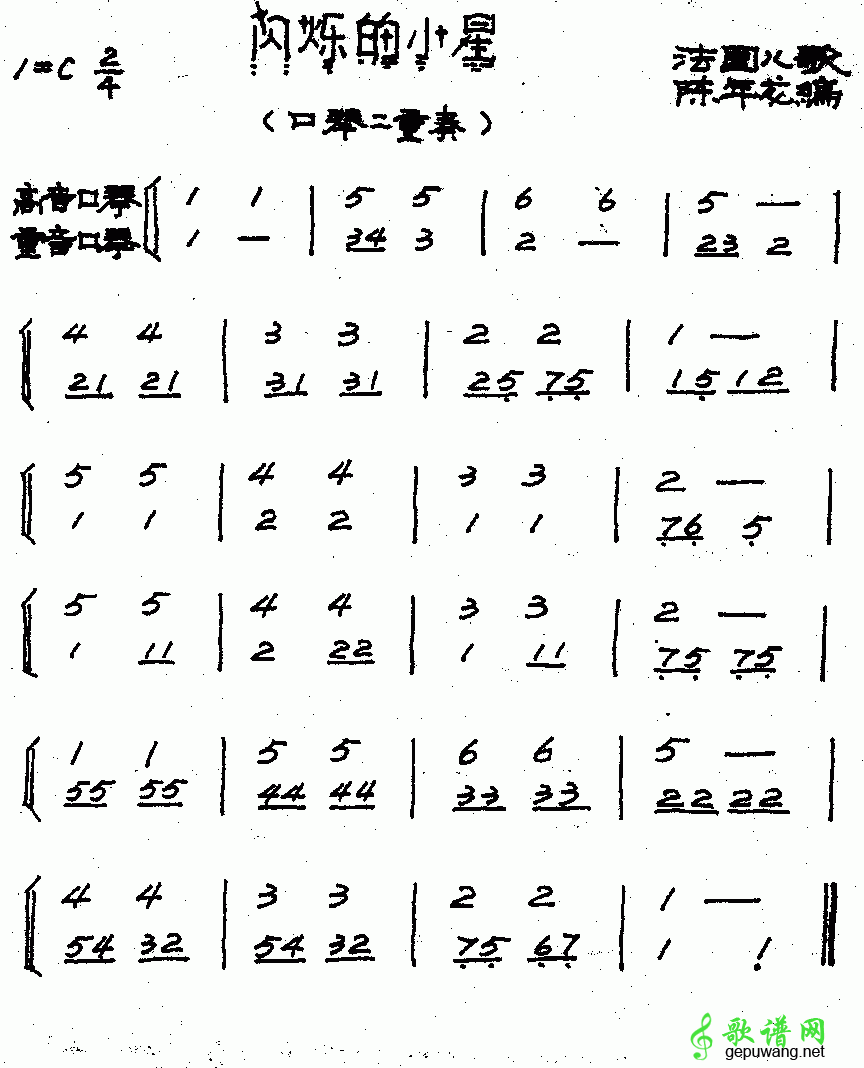 闪烁的小星
1=C 2/4
法国儿歌
陈年芳编
（口琴二重奏）
高音口琴 1 1 | 5 5 | 6 6 | 5 — |
重音口琴 1 — | 34 3 | 2 — | 23 2 |
4 4 | 3 3 | 2 2 | 1 — |
21 21 | 31 31 | 25 75 | 15 12 |
5 5 | 4 4 | 3 3 | 2 — |
1 1 | 2 2 | 1 1 | 76 5 |
5 5 | 4 4 | 3 3 | 2 — |
1 11 | 2 22 | 1 11 | 75 75 |
1 1 | 5 5 | 6 6 | 5 — |
55 55 | 44 44 | 33 33 | 22 22 |
4 4 | 3 3 | 2 2 | 1 — ||
54 32 | 54 32 | 75 67 | 1 1 ||
歌谱网
gepuwang.net